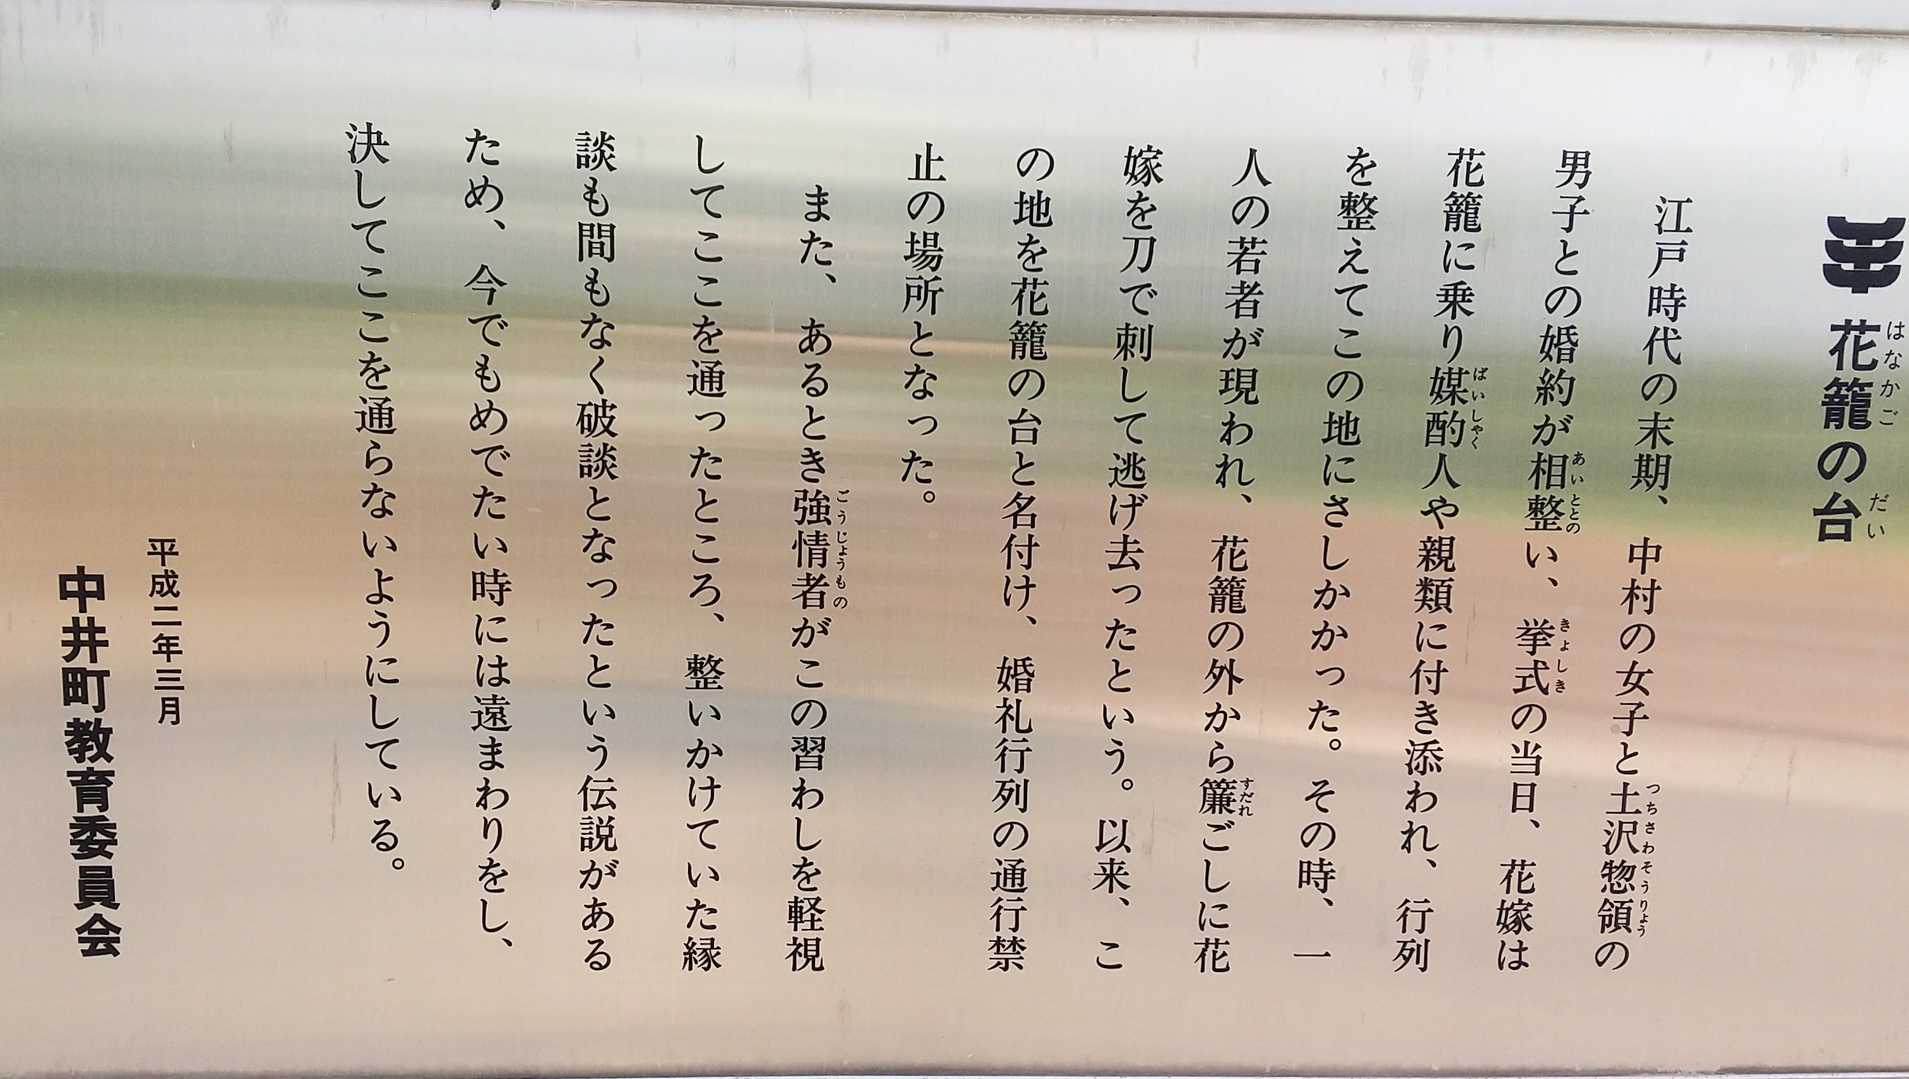 花籠の台
はなかご だい
江戸時代の末期、中村の女子と土沢惣領の
つちさわそうりょう
男子との婚約が相整い、挙式の当日、花嫁は
あいととの きょしき
花籠に乗り媒酌人や親類に付き添われ、行列
ばいしゃく
を整えてこの地にさしかかった。その時、一
人の若者が現われ、花籠の外から簾ごしに花
すだれ
嫁を刀で刺して逃げ去ったという。以来、こ
の地を花籠の台と名付け、婚礼行列の通行禁
止の場所となった。
また、あるとき強情者がこの習わしを軽視
ごうじょうもの
してここを通ったところ、整いかけていた縁
談も間もなく破談となったという伝説がある
ため、今でもめでたい時には遠まわりをし、
決してここを通らないようにしている。
平成二年三月
中井町教育委員会